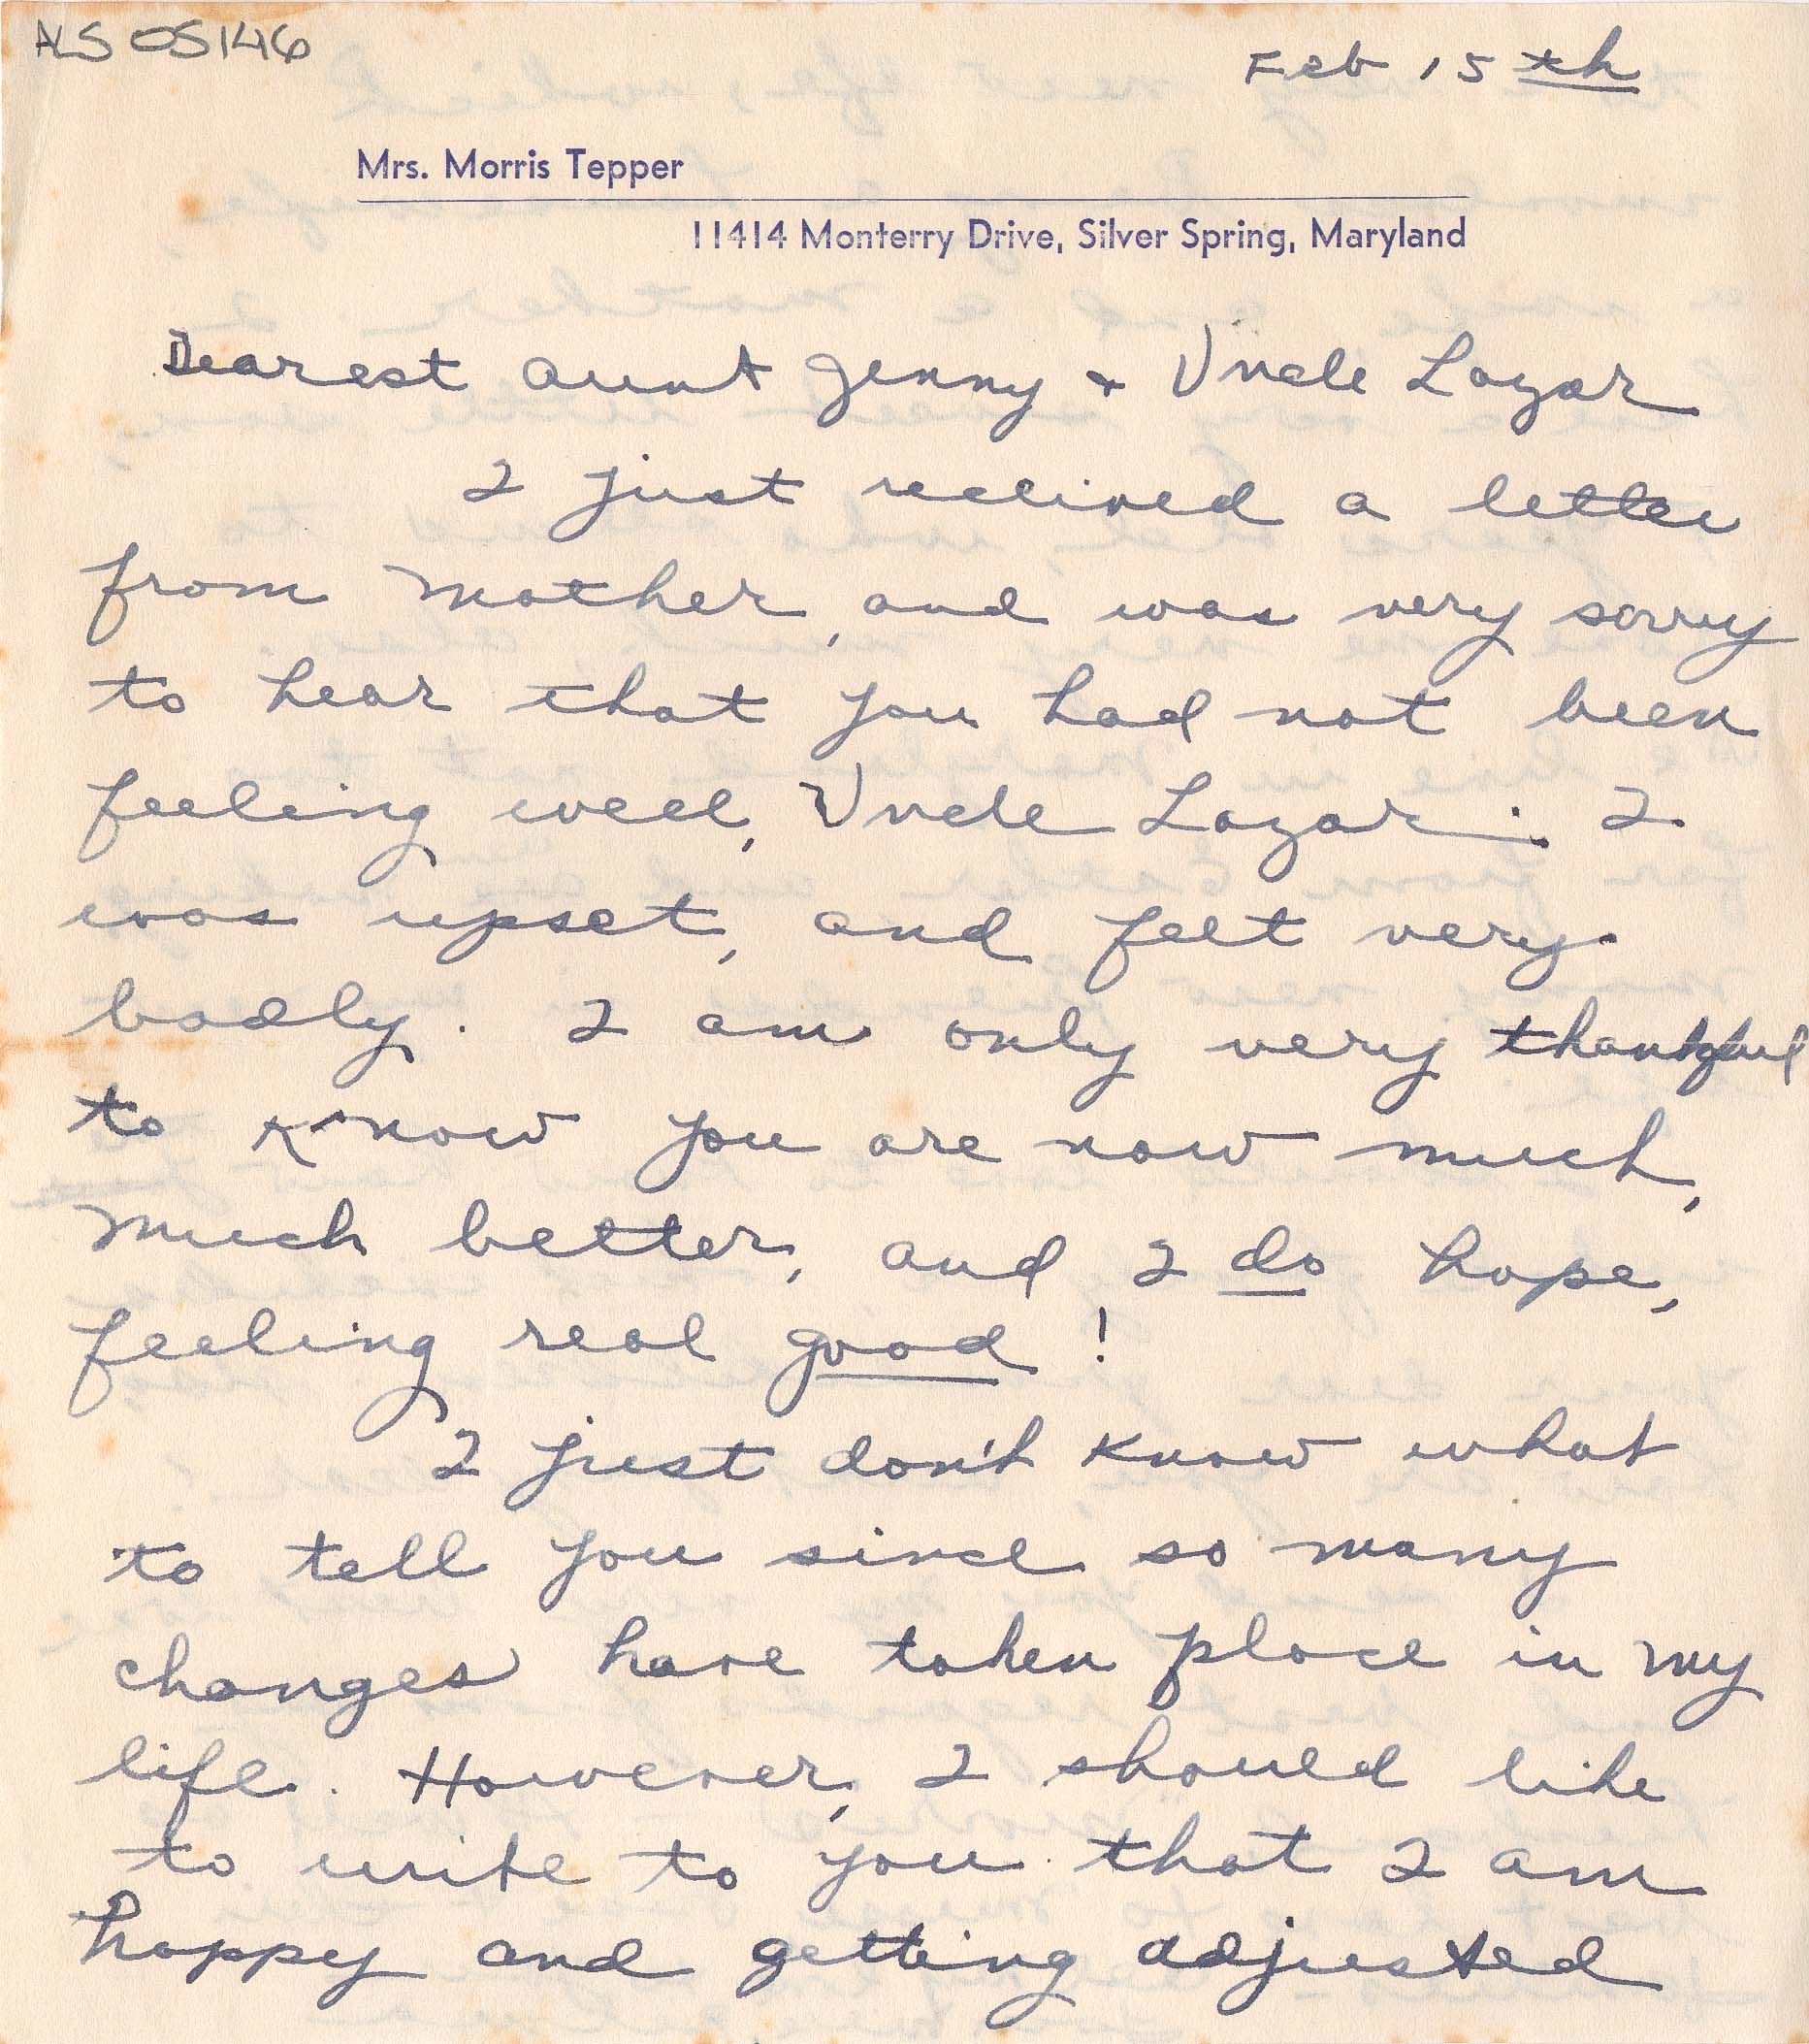 ALS 05146
Feb 15th
Mrs. Morris Tepper
11414 Monterry Drive, Silver Spring, Maryland
Dearest Aunt Jenny + Uncle Lazar
I just received a letter
from Mother, and was very sorry
to hear that you had not been
feeling well, Uncle Lazar. I
was upset, and felt very
badly. I am only very thankful
to know you are now much,
much better, and I do hope,
feeling real good!
I just don't know what
to tell you since so many
changes have taken place in my
life. However, I should like
to write to you that I am
happy and getting adjusted